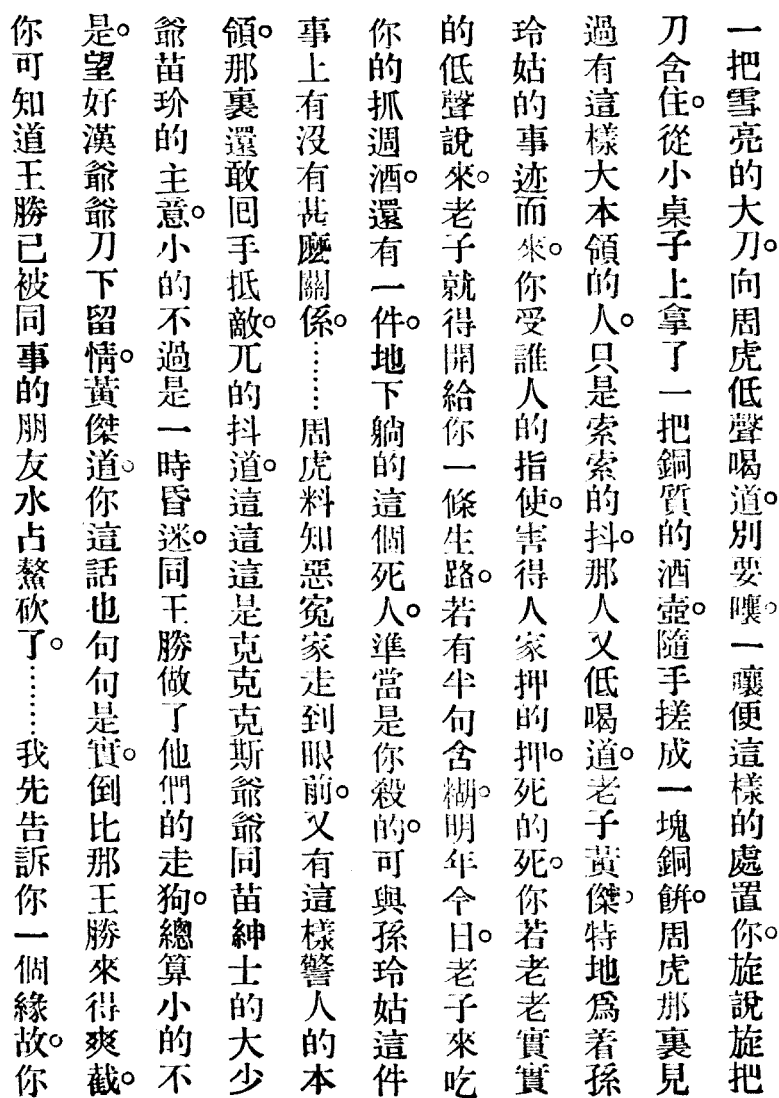 一把雪亮的大刀。向周虎低聲喝道。別要嚷。一嚷便這樣的處置你。旋說旋把
刀含住。從小桌子上拿了一把銅質的酒壺。隨手搓成一塊銅餅。周虎那裏見
過有這樣大本領的人。只是索索的抖。那人又低喝道。老子黃傑。特地爲着孫
玲姑的事迹而來。你受誰人的指使。害得人家押的押。死的死。你若老老實實
的低聲說來。老子就得開給你一條生路。若有半句含糊。明年今日。老子來吃
你的抓週酒。還有一件。地下躺的這個死人。準當是你殺的。可與孫玲姑這件
事上有沒有甚麽關係。……周虎料知惡寃家走到眼前。又有這樣警人的本
領。那裏還敢囘手抵敵。兀的抖道。這這這是克克克斯爺爺同苗紳士的大少
爺苗玠的主意。小的不過是一時昏迷。同王勝做了他們的走狗。總算小的不
是。望好漢爺爺刀下留情。黃傑道。你這話也句句是實。倒比那王勝來得爽截。
你可知道王勝已被同事的朋友水占鰲砍了。……我先告訴你一個緣故。你